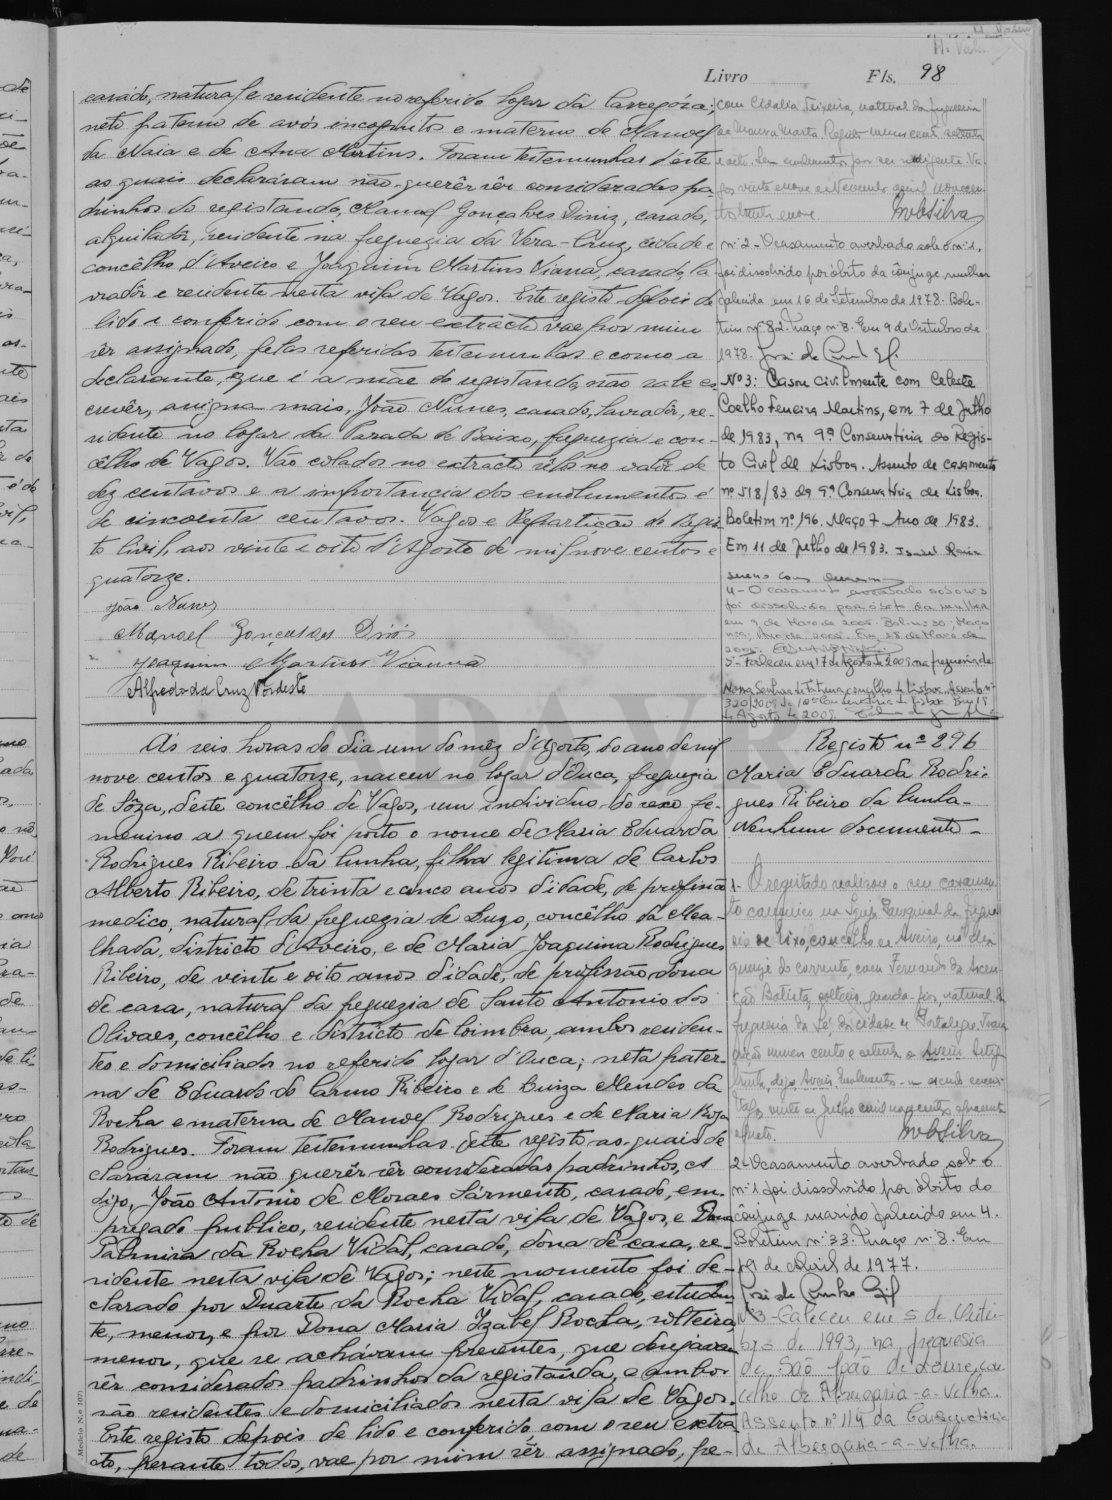 Livro Fls. 98
casado, natural e residente no referido logar da Carregosa;
neto paterno de avós incognitos e materno de Manoel
da Naia e de Ana Martins. Foram testemunhas d'este
as quais declararam não querêr sêr considerados pa-
drinhos do registando, Manoel Gonçalves Diniz, casado,
alquiladôr, residente na freguezia da Vera-Cruz, cidade e
concêlho d'Aveiro e Joaquim Martins Viana, casado, la-
vradôr e residente nesta vila de Vagos. Este registo depois de
lido e conferido com o seu extracto vae por mim
sêr assignado, pelas referidas testemunhas e como a
declarante, que é a mãe do registando, não sabe es-
crevêr, assigna mais, João Nunes, casado, lavradôr, re-
sidente no logar da Parada de Baixo, freguezia e con-
cêlho de Vagos. Vão colados no extracto sêlos no valôr de
dez centavos e a importancia dos emolumentos é
de cincoenta centavos. Vagos e Repartição do Regis-
to Civil, aos vinte e oito d'Agosto de mil nove centos e
quatorze.
João Nunes
Manoel Gonçalves Diniz
Joaquim Martins Vianna
Alfredo da Cruz Nordeste
com Cidalia Teixeira, natural da freguesia
nº 2 - O casamento averbado sob o nº 1,
foi dissolvido por óbito da cônjuge mulher
falecida em 16 de Setembro de 1978. Bole-
tim nº 82. Maço nº 8. Em 9 de Outubro de
1978.
Nº 3: Casou civilmente com Celeste
Coelho Ferreira Martins, em 7 de Julho
de 1983, na 9ª Conservatória do Regis-
to Civil de Lisboa. Assento de casamento
nº 518/83 da 9ª Conservatória de Lisboa.
Boletim nº 196. Maço 7. Ano de 1983.
Em 11 de Julho de 1983.
4 - O casamento averbado sob o nº 3
foi dissolvido por óbito da mulher
em 9 de Março de 2005.
5 - Faleceu em 17 de Agosto de 2009 na freguesia de
Nossa Senhora de Fátima, concelho de Lisboa. Assento nº
ADAVR
Ás seis horas do dia um do mêz d'Agosto, do ano de mil
nove centos e quatorze, nasceu no logar d'Ouca, freguezia
de Sôza, d'este concêlho de Vagos, um individuo do sexo fe-
menino a quem foi posto o nome de Maria Eduarda
Rodrigues Ribeiro da Cunha, filha legitima de Carlos
Alberto Ribeiro, de trinta e cinco anos d'idade, de profissão
medico, natural da freguezia de Luzo, concêlho da Mea-
lhada, districto d'Aveiro, e de Maria Joaquina Rodrigues
Ribeiro, de vinte e oito anos d'idade, de profissão dona
de casa, natural da freguezia de Santo Antonio dos
Olivaes, concêlho e districto de Coimbra, ambos residen-
tes e domiciliados no referido logar d'Ouca; neta pater-
na de Eduardo do Carmo Ribeiro e de Luiza Mendes da
Rocha e materna de Manoel Rodrigues e de Maria Roza
Rodrigues. Foram testemunhas d'este registo as quais de-
clararam não querêr sêr consideradas padrinhos, A
digo, João Antonio de Moraes Sarmento, casado, em-
pregado publico, residente nesta vila de Vagos, e Dona
Palmira da Rocha Vidal, casada, dona de casa, re-
sidente nesta vila de Vagos; neste momento foi de-
clarado por Duarte da Rocha Vidal, casado, estudan-
te, menor, e por Dona Maria Izabel Rocha, solteira,
menor, que se achavam presentes, que desejavam
sêr considerados padrinhos da registanda, e ambos
são residentes e domiciliados nesta vila de Vagos.
Este registo depois de lido e conferido, com o seu extra-
cto, perante todos, vae por mim sêr assignado, pe-
Registo nº 296
Maria Eduarda Rodri-
gues Ribeiro da Cunha -
Nenhum documento -
1 - O registado realizou o seu casamen-
to canonico na Igreja Paroquial da fregue-
sia de Eixo, concelho de Aveiro, no dia
quinze do corrente, com Fernando da Ascen-
ção Batista, solteiro, guarda-fios, natural da
freguesia da Sé, da cidade de Portalegre.
2 - O casamento averbado sob o
nº 1 foi dissolvido por óbito do
cônjuge marido falecido em 4.
Boletim nº 33. Maço nº 8. Em
19 de Abril de 1977.
José da Cunha Gil
Nº 3 - Faleceu em 5 de Outu-
bro de 1993, na freguesia
de São João de Loure, con-
celho de Albergaria-a-Velha.
Assento nº 114 da Conservatória
de Albergaria-a-Velha.
Modelo N.º 10